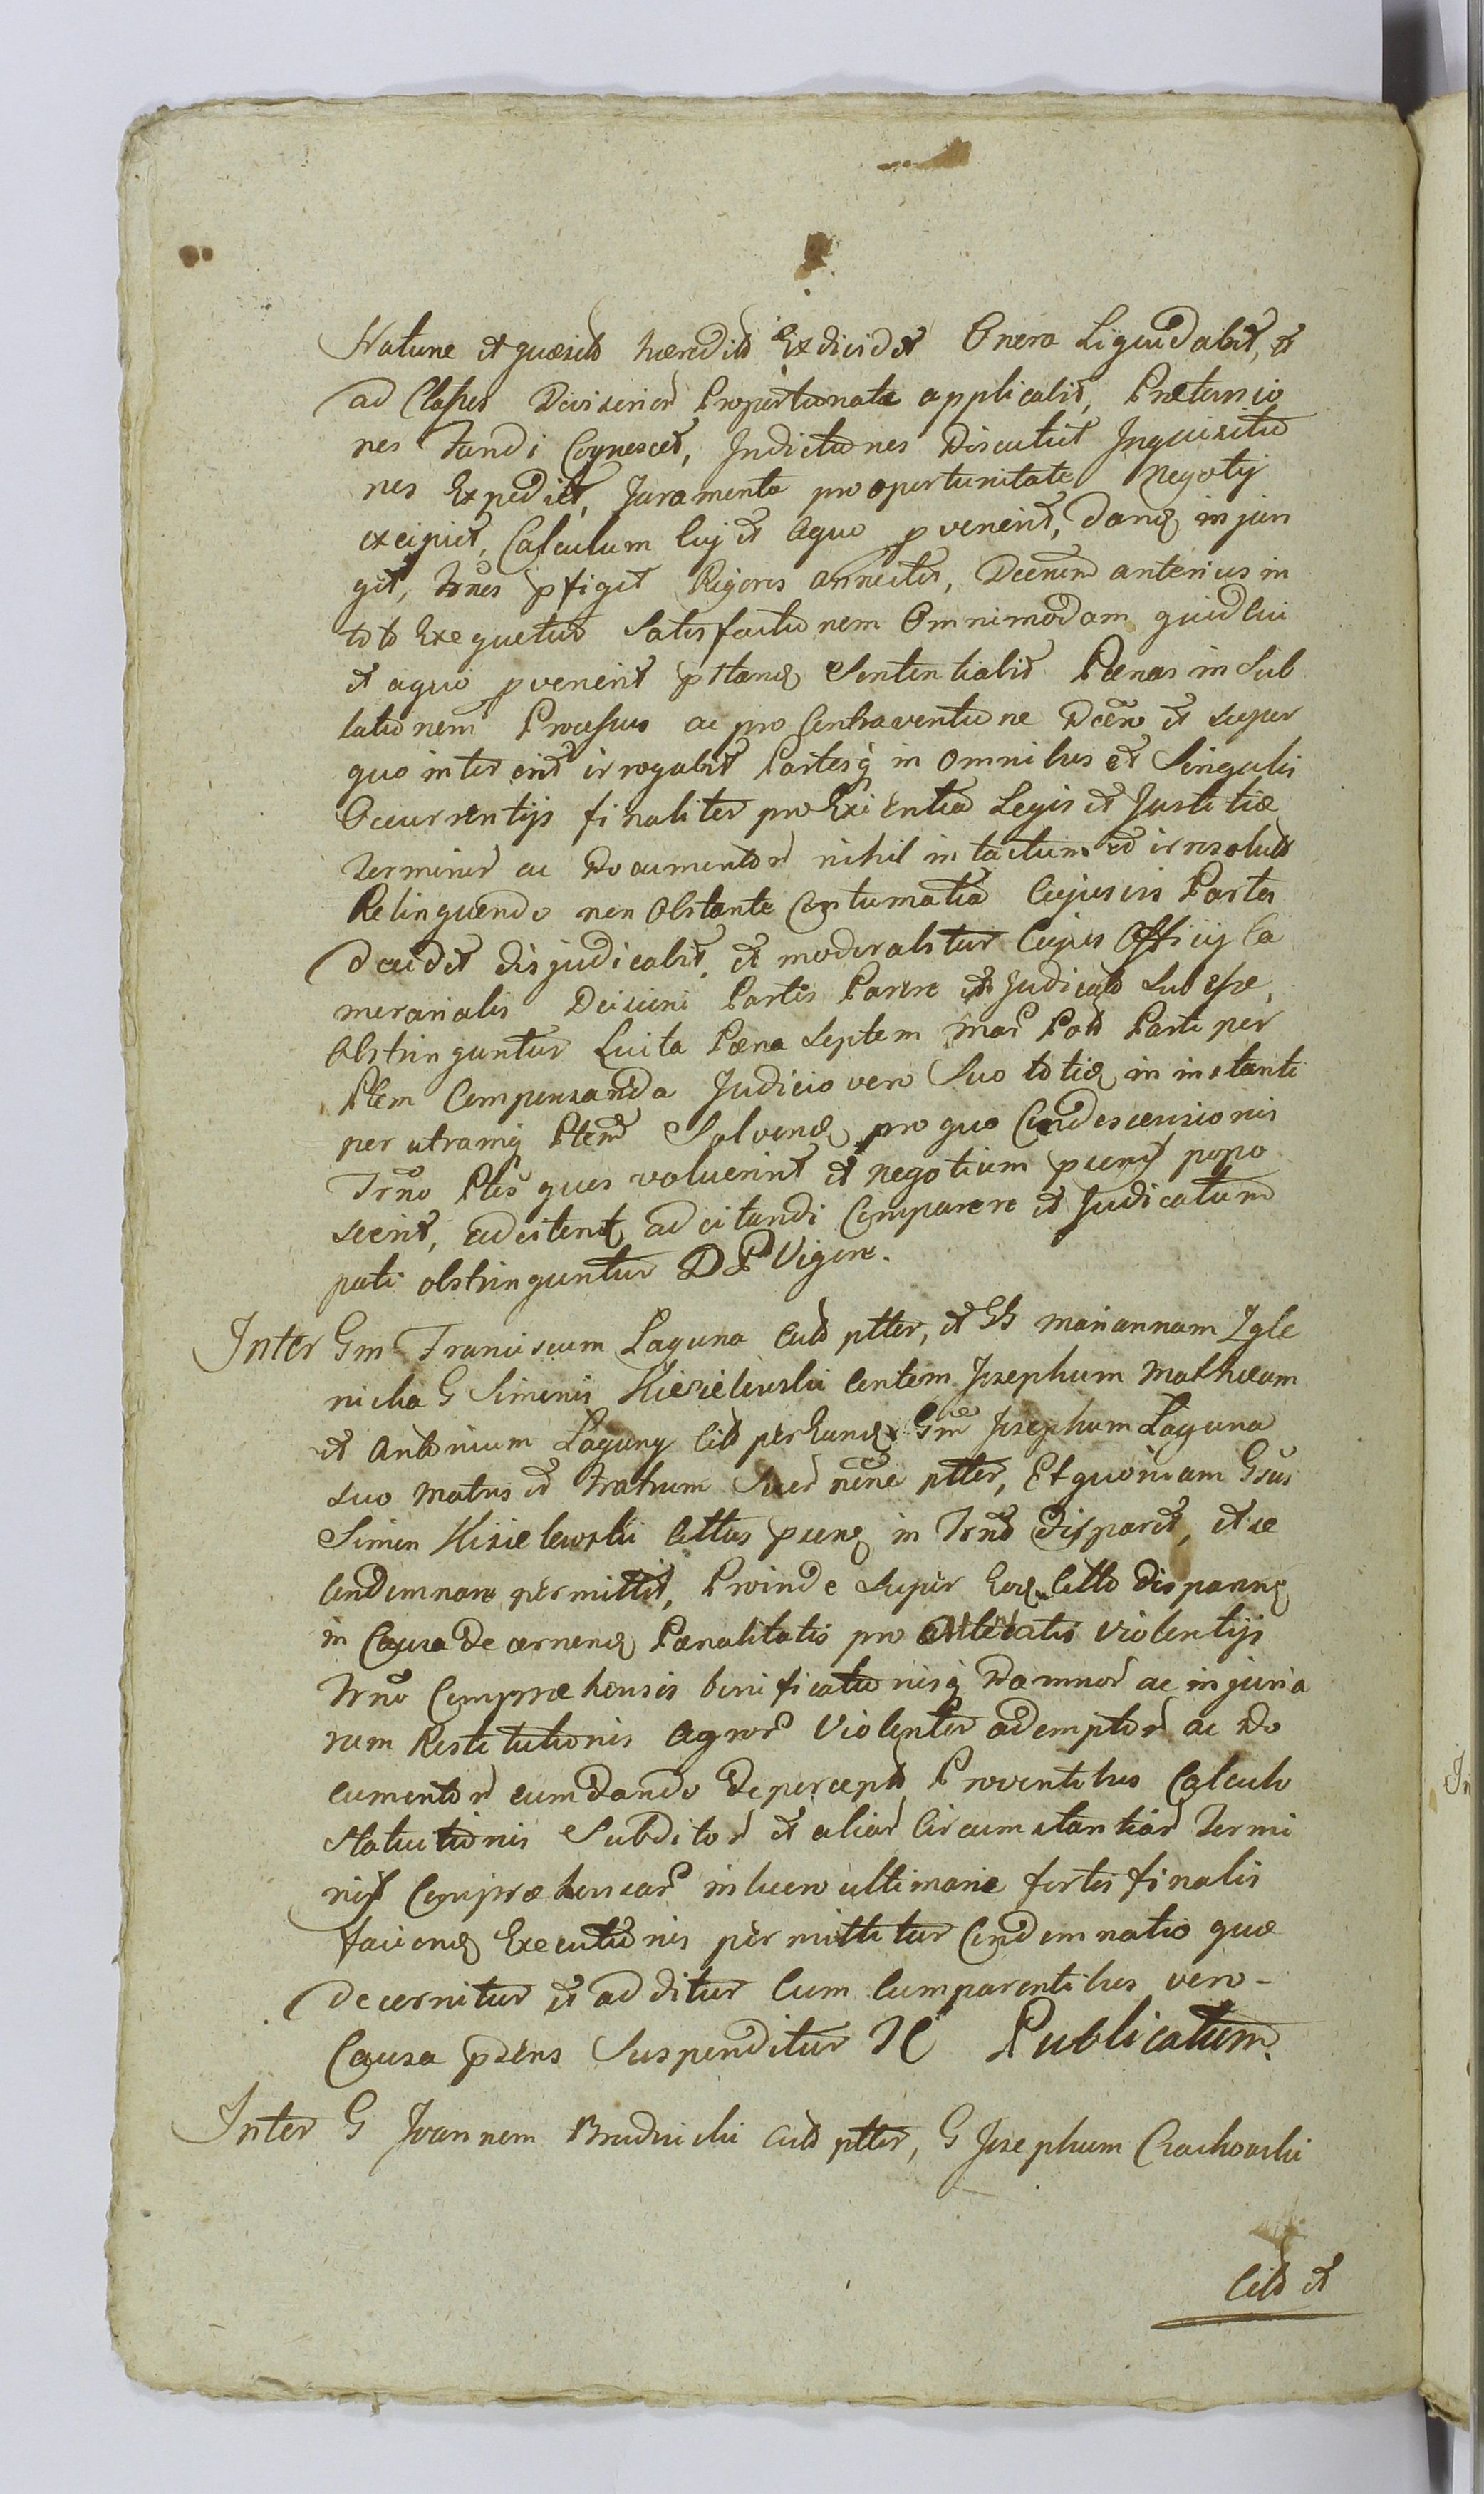 Nature et quæsito hæredit Exdividet Onera Liquidabit, et
ad Classes Divisionem Proportionate applicabit, Prætensio
nes fundi Cognoscet, Indictiones Discutiet Inquisitio
nes Expediet, Juramenta pro opertunitate Negotij
excipiet, Calculum Cuj et aquo pvenerit, dand injun
get, Trnos pfiget Rigores annectet, Dcenem anterius in
toto Exequetur Satisfactionem Omnimodam quid cui
et aquo pvenerit pstand Sententiabit Pænas in Sub
lationem Processus ac pro Contraventione Dcen et super
quo inter erit irrogabit Partesq in omnibus et Singulis
Occurrentijs finaliter pro Exientia Legis et Justitiæ
Terminor ac Documentor nihil intactum et irresolut
Relinquendo non Obstante Contumatia Cujusvis Partes
decidet disjudicabit, et moderabitur Cujus Officij Ca
merarialis Decisioni Partes Parere et Judicato Subesse,
Obstringuntur Lucta Pæna Septem Mar Pold Parti per
Ptem Compensanda Judicio vero Suo toties in instanti
per utramq Ptem Solvend pro quo Condescensionis
Trno Ptes quos voluerint et negotium psens popo
scerit, adcitent adcitandi Comparere et Judicatum
pati obstringuntur D P Vigore.
Inter Gm Franciscum Laguna Cito ptter, et GG Mariannam Igle
nicka G Simonis Kisielewski Contem Josephum Mathæum
et Antonium Laguny Cit per Eund Gm Josephum Laguna
suo Matris et Fratrum Suor nene ptter, Et quoniam Gsus
Simon Kisielewski Cittus psens in Trno disparet, et se
Condemnare permittit, Proinde Super Eod Citto disparend
in Causa decernend Pænalitatis pro violentijs
Trno Compræhensis bonificationisq Damnor ac injuria
rum Restitutionis Agror Violenter ademptor ac Do
cumentor cum dando de percept Proventibus Calculo
Statuitionis Subditor et aliar Circumstantiar Termi
nis Comprehensar in lucro ultimarie fortis finalis
faciend Executionis permittitur Condemnatio quæ
decernitur et additur Cum Comparentibus vero -
Causa psens Suspenditur Publicatum.
Inter G Joannem Brudnicki Cit ptter, G Josephum Czachowski
Cit et